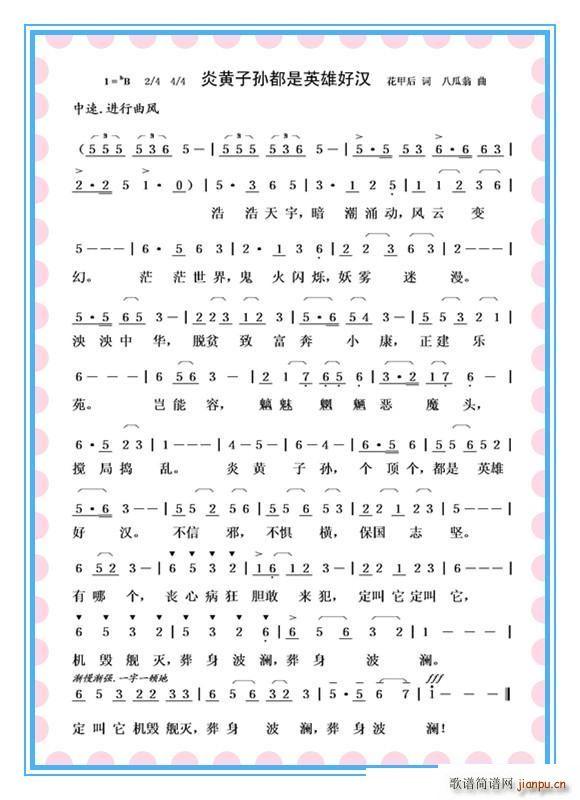 1=ᵇB 2/4 4/4 炎黄子孙都是英雄好汉 花甲后 词 八瓜翁 曲
中速.进行曲风
(555 536 5－|555 536 5－|5·5 53 6·6 63|
2·2 5 1·0)|5·3 6 5|3·1 2 5|1 1 2 3 6|
浩浩天宇,暗潮涌动,风云变
5－－－|6·5 3 6|2·1 3 6|2 2 3 6 3|2－－－|
幻。茫茫世界,鬼火闪烁,妖雾迷漫。
5·5 65 3－|223 12 3－|5·6 54 3－|55 3 21|
泱泱中华,脱贫致富奔小康,正建乐
6－－－|6 56 3－|2 1 7 65|3·2 17 6|
苑。岂能容,魑魅魍魉恶魔头,
6·5 23|1－－－|4－5－|6－4－|6·5 2|55 652|
搅局捣乱。炎黄子孙,个顶个,都是英雄
5·6 3－－|55 2 56|55 2 3 5|22 1 23|5－－－|
好汉。不信邪,不惧横,保国志坚。
6 52 3－|6 5 3 2|16 12 3－|33 2 12 3|
有哪个,丧心病狂胆敢来犯,定叫它定叫它,
6 5 3 2|5 5 3 2 6|6 5 6 5 3|2－－－|
机毁舰灭,葬身波澜,葬身波澜。
渐慢渐强.一字一顿地 fff
6 5 3 22 33|6·5 3 2 3|5·5 6 7|1－－‖
定叫它机毁舰灭,葬身波澜,葬身波澜!
歌谱简谱网
jianpu.cn